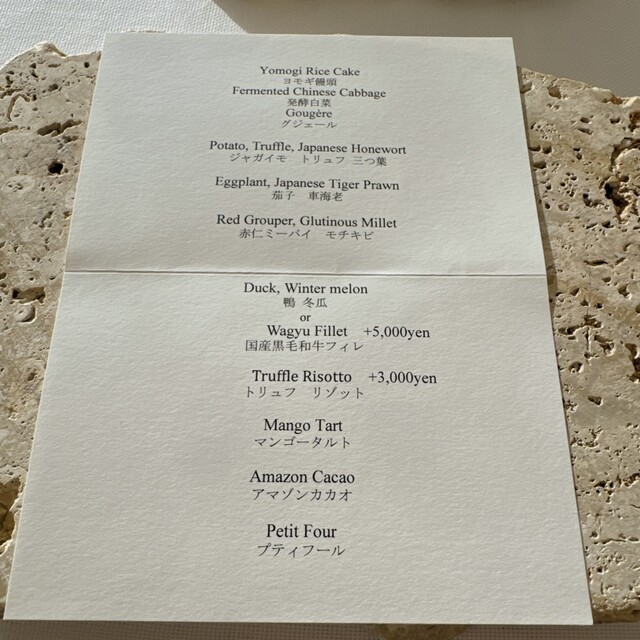 Yomogi Rice Cake
ヨモギ饅頭
Fermented Chinese Cabbage
発酵白菜
Gougère
グジェール
Potato, Truffle, Japanese Honewort
ジャガイモ　トリュフ 三つ葉
Eggplant, Japanese Tiger Prawn
茄子　車海老
Red Grouper, Glutinous Millet
赤仁ミーバイ　モチキビ
Duck, Winter melon
鴨 冬瓜
or
Wagyu Fillet +5,000yen
国産黒毛和牛フィレ
Truffle Risotto +3,000yen
トリュフ　リゾット
Mango Tart
マンゴータルト
Amazon Cacao
アマゾンカカオ
Petit Four
プティフール